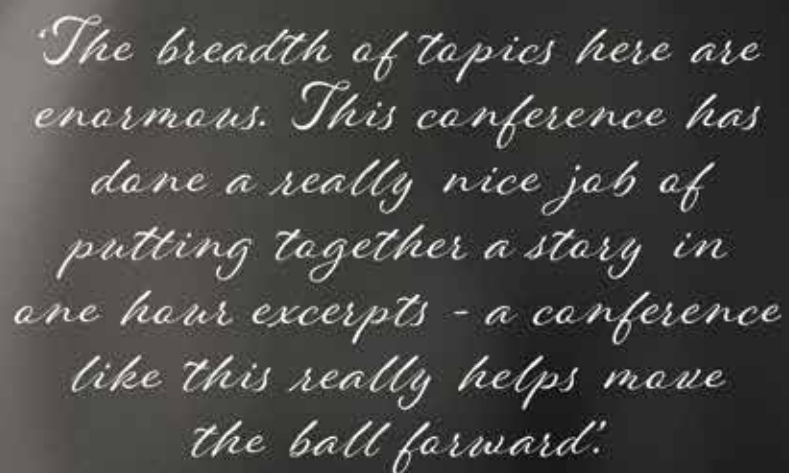 ‘The breadth of topics here are
enormous. This conference has
done a really nice job of
putting together a story in
one hour excerpts - a conference
like this really helps move
the ball forward’.